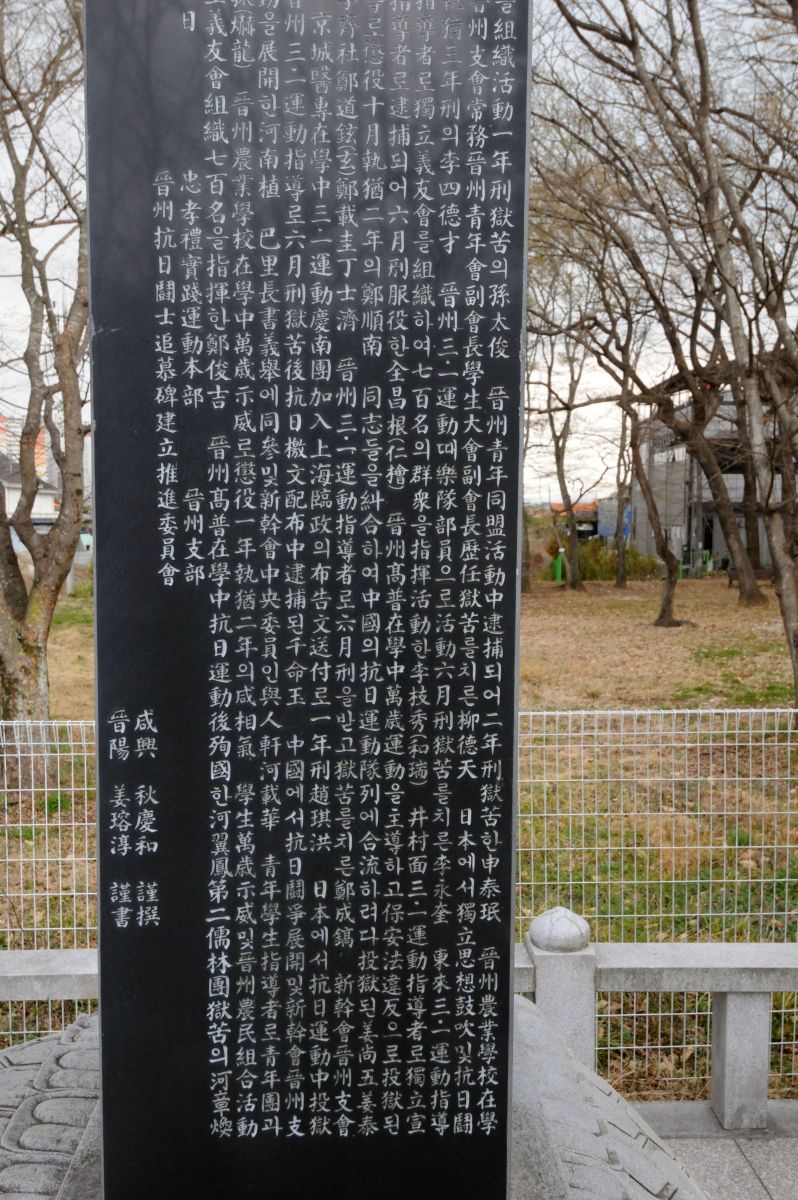 을組織活動一年刑獄苦의孫太俊 晉州青年同盟活動中逮捕되어二年刑獄苦한申泰珉 晉州農業學校在學
晉州支會常務晉州青年會副會長學生大會副會長歷任獄苦를치른柳德天 日本에서獨立思想鼓吹및抗日鬪
執猶三年刑의李四德才 晉州三.一運動때樂隊部員으로活動六月刑獄苦를치른李永奎 東來三.一運動指導
指導者로獨立義友會를組織하여七百名의群衆을指揮活動한李枝秀(和瑞) 井村面三.一運動指導者로獨立宣
指導者로逮捕되어六月刑服役한全昌根(仁檜) 晉州高普在學中萬歲運動을主導하고保安法違反으로投獄된
로懲役十月執猶二年의鄭順南 同志들을糾合하여中國의抗日運動隊列에合流하려다投獄된姜尚五姜泰
齊社鄭道鉉(玄)鄭載圭丁士濟 晉州三.一運動指導者로六月刑을받고獄苦를치른鄭成鎬 新幹會晉州支會
京城醫專在學中三.一運動慶南團加入上海臨政의布告文送付로一年刑趙琪洪 日本에서抗日運動中投獄
晉州三.一運動指導로六月刑獄苦後抗日檄文配布中逮捕된千命玉 中國에서抗日鬪爭展開및新幹會晉州支
動을展開한河南植 巴里長書義擧에同參및新幹會中央委員인輿人 軒河載華 青年學生指導者로青年團과
龍) 晉州農業學校在學中萬歲示威로懲役一年執猶二年의咸相氣 學生萬歲示威및晉州農民組合活動
立義友會組織七百名을指揮한鄭俊吉 晉州高普在學中抗日運動後殉國한河翼鳳第二儒林團獄苦의河章煥
日
忠孝禮實踐運動本部 晉州支部
晉州抗日鬪士追慕碑建立推進委員會
咸興 秋慶和 謹撰
晉陽 姜瑢淳 謹書